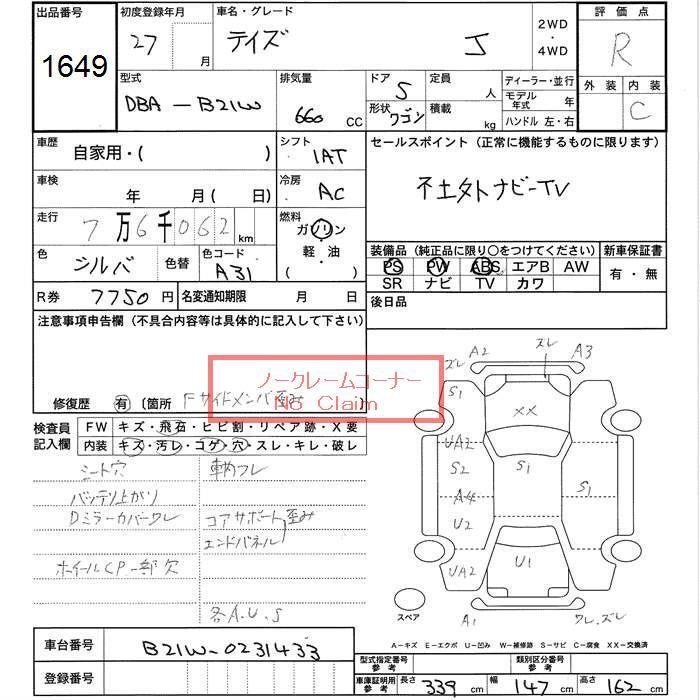 出品番号
1649
初度登録年月
27 月
車名・グレード
デイズ J
2WD
・
4WD
評価点
R
外装 内装
C
型式
DBA-B21W
排気量
660 CC
ドア 5
形状 ワゴン
定員 人
積載 kg
ディーラー・並行
モデル年式 年
ハンドル 左・右
車歴
自家用・( )
シフト
IAT
セールスポイント(正常に機能するものに限ります)
車検
年 月( 日)
冷房
AC
走行
7万6千062 km
燃料
ガソリン
軽・油
( )
色
シルバ
色替
色コード
A31
装備品(純正品に限り○をつけてください)
新車保証書
PS PW ABS エアB AW
SR ナビ TV カワ
有・無
R券 7750円
名変通知期限 月 日
後日品
注意事項申告欄(不具合内容等は具体的に記入して下さい)
ノークレームコーナー
No Claim
修復歴 有 〔箇所 Fサイドメンバ歪み
検査員記入欄
FW キズ・飛石・ヒビ割・リペア跡・X要
内装 キズ・汚レ・コゲ・穴・スレ・キレ・破レ
シート穴
車内フレ
バッテリ上がり
Dミラーカバーワレ
コアサポート歪み
エンドパネル
ホイールCP一部欠
各A.U.S
ズレ A2 ズレ A3
S1
XX
UA2
S2
S1
S1
A4
U2
UA2
U1
A1
ワレ、ズレ
スペア
A-キズ E-エクボ U-凹み W-補修跡 S-サビ C-腐食 XX-交換済
車台番号
B21W-0231433
登録番号
型式指定番号
参考
類別区分番号
参考
車庫証明用
参考
長さ 339 cm 幅 147 cm 高さ 162 cm